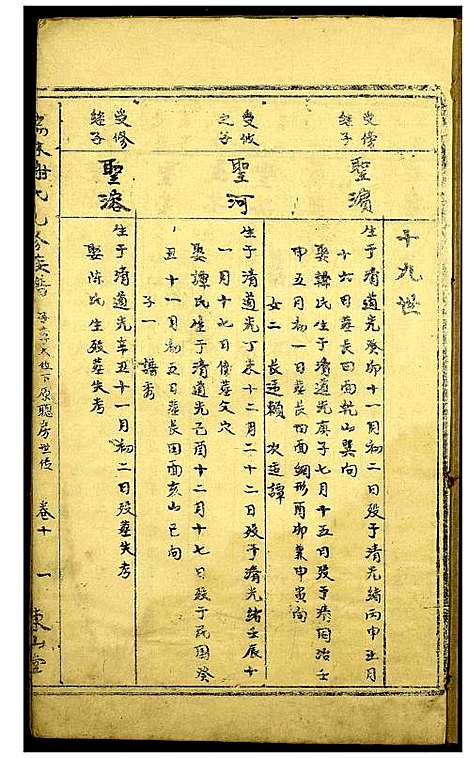 十九世
受修
継子
聖濵
生于清道光癸卯十一月初二日殁于清光緒丙申五月
十六日塟長田面乾山巽向
娶韓氏生于清道光庚子七月十五日殁于清同治壬
申五月初一日塟長田面銅形酉卯兼申寅向
女二 長適賴 次適譚
受攸
之子
聖河
生于清道光丁未十二月二十二日殁于清光緒壬辰十
一月十七日俱塟父穴
娶譚氏生于清道光己酉十二月十七日殁于民國癸
丑十一月初五日塟長田面亥山巳向
子一
受修
継子
聖溶
生于清道光辛丑十一月初二日殁塟失考
娶陈氏生殁塟失考
謝氏九修族譜 位下原聰房世传 卷十 一 東山堂